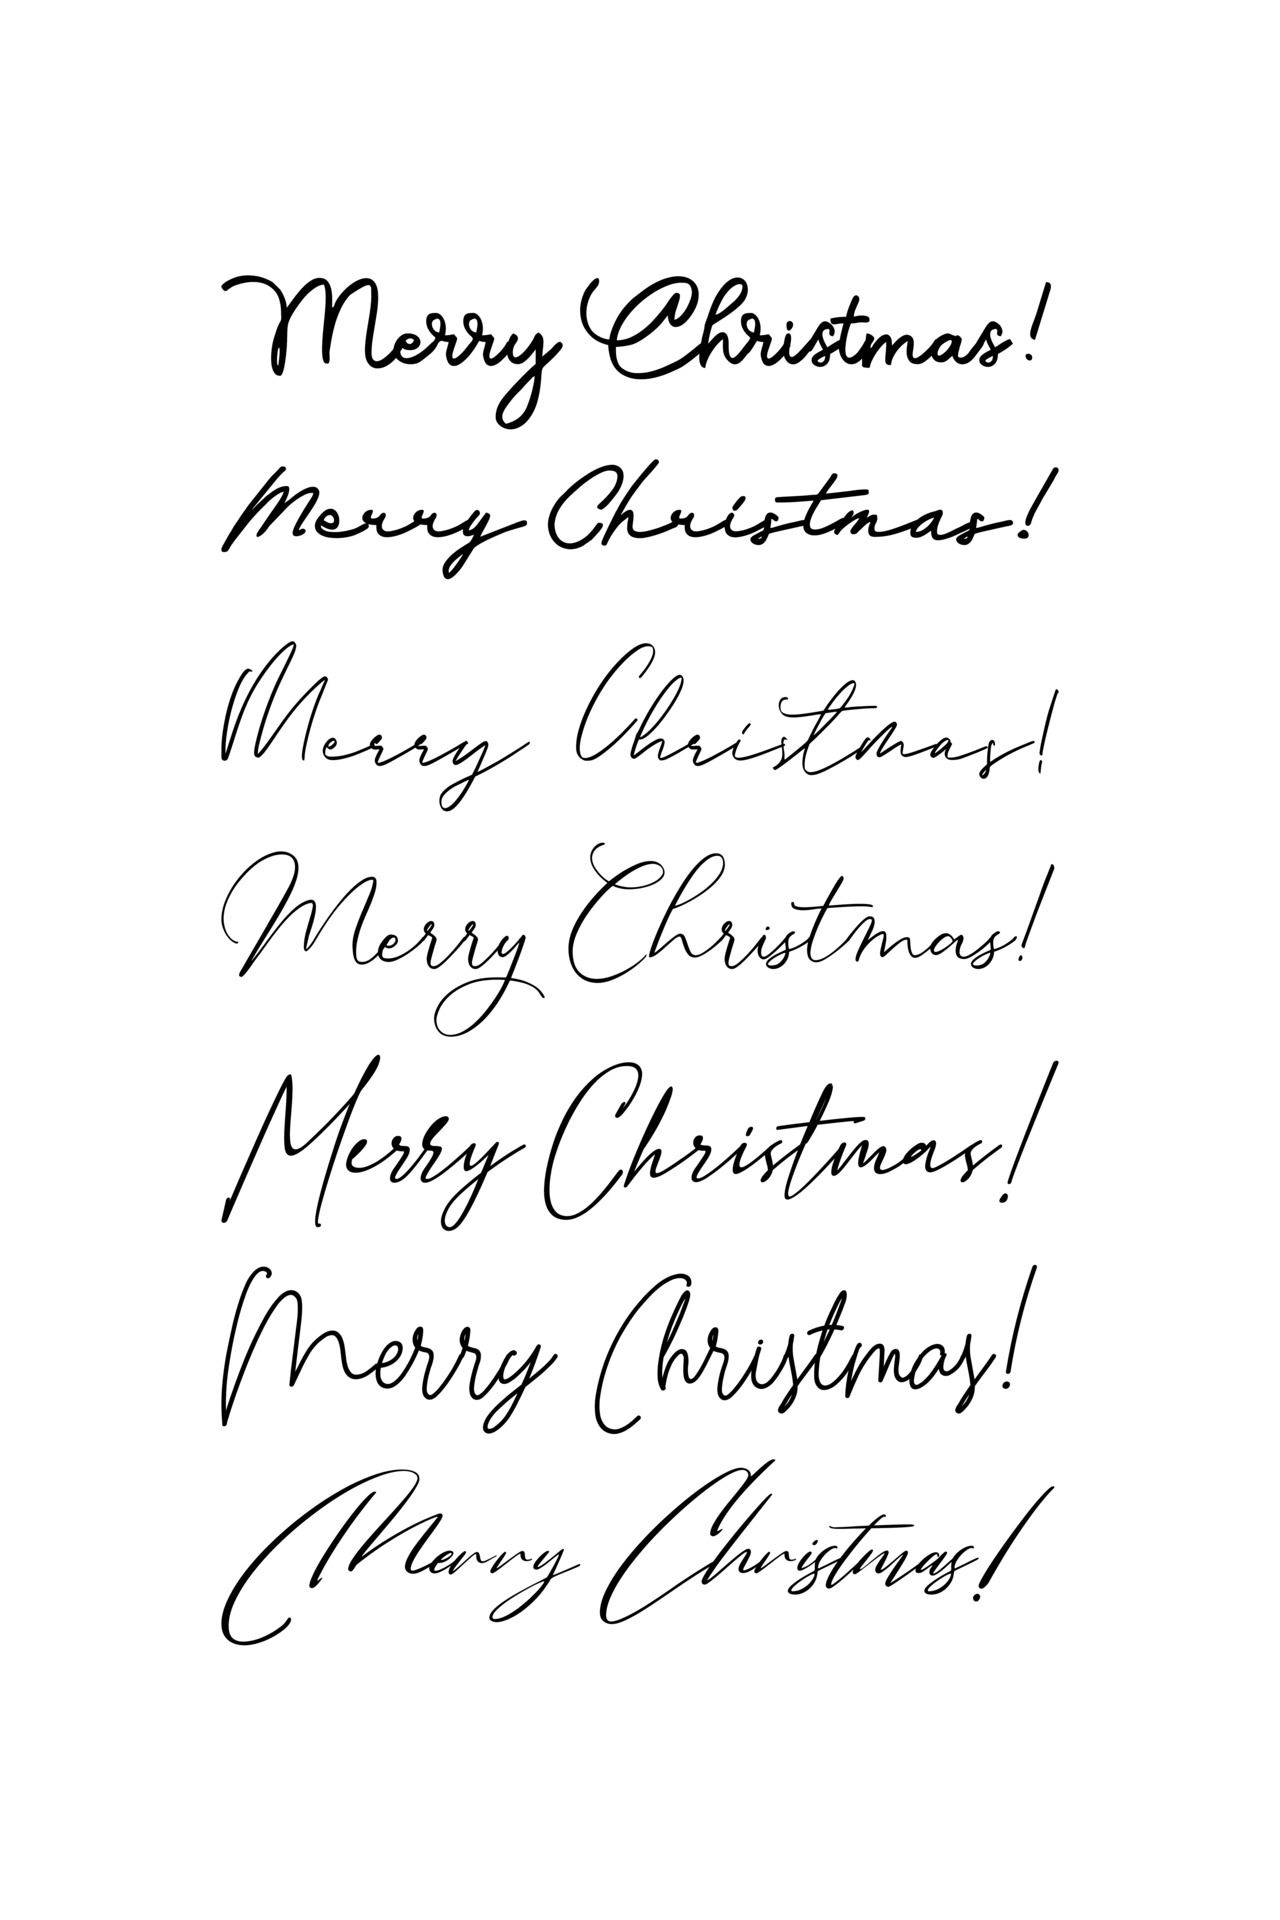 Merry Christmas!
Merry Christmas!
Merry Christmas!
Merry Christmas!
Merry Christmas!
Merry Christmas!
Merry Christmas!